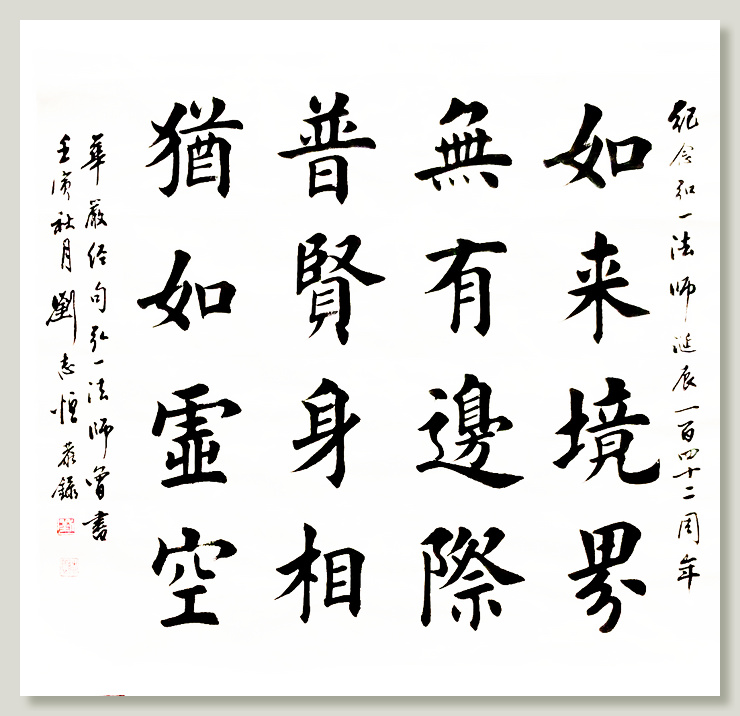 紀念弘一法師誕辰一百四十二周年
如来境界
無有邊際
普賢身相
猶如虛空
華嚴经句弘一法師曾書
壬寅秋月劉志恒敬錄